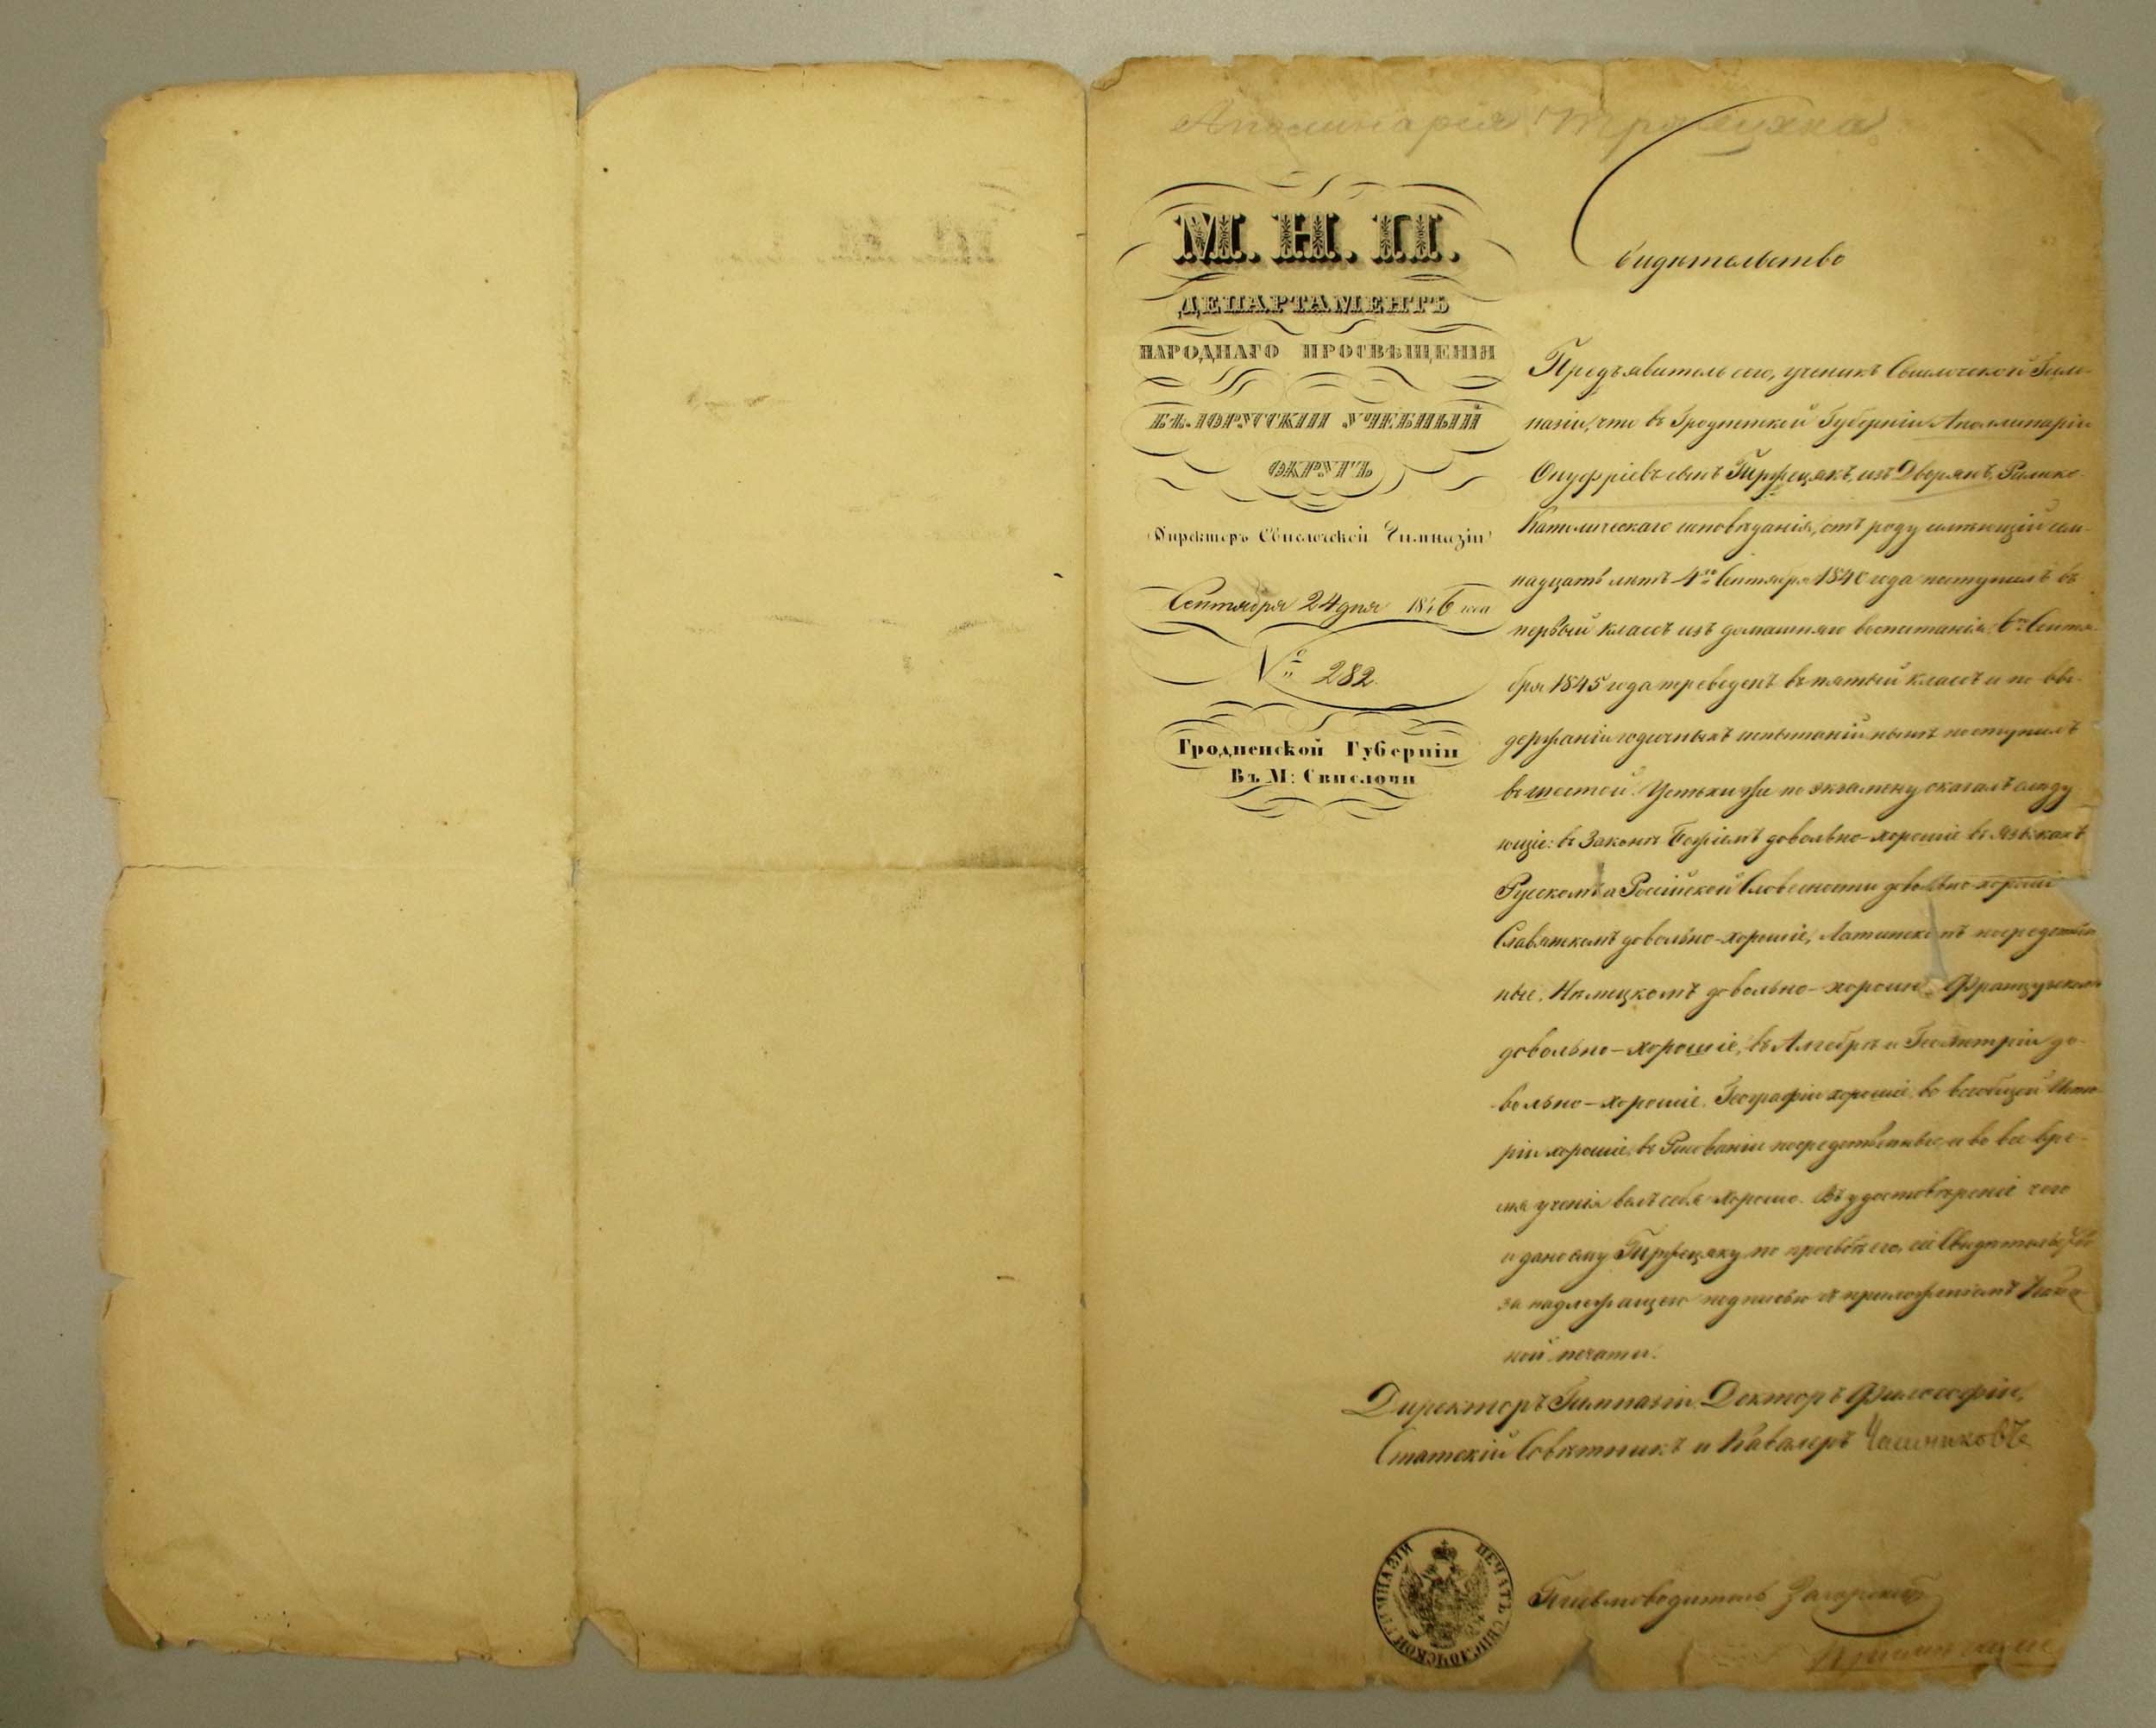 Аполинарія
М. Н. П.
ДЕПАРТАМЕНТЪ
НАРОДНАГО ПРОСВѢЩЕНІЯ
БѢЛОРУССКІЙ УЧЕБНЫЙ
ОКРУГЪ
Директоръ Свислочской Гимназіи
Сентября 24 дня 1846 года
№ 282.
Гродненской Губерніи
Въ М: Свислочи
Свидѣтельство
Предъявитель сего, ученикъ Свислочской Гим-
назіи, что въ Гродненской Губерніи Аполлинарій
Онуфріевъ сынъ изъ Дворянъ, Римско-
Католическаго исповѣданія, отъ роду имѣющій сем-
надцать лѣтъ 4го Сентября 1840 года поступилъ въ
первый классъ изъ домашняго воспитанія; 6го Сентя-
бря 1845 года переведенъ въ пятый классъ и по вы-
держаніи годичныхъ испытаній нынѣ поступилъ
въ шестой. Успѣхи же по экзамену оказалъ слѣду
ющіе: въ Законѣ Божіемъ довольно-хорошіе въ языкахъ
Русскомъ и Россійской Словесности довольно-хорошіе
Славянскомъ довольно-хорошіе, Латинскомъ посредствен
ные, Нѣмецкомъ довольно-хорошіе, Французскомъ
довольно-хорошіе, въ Алгебрѣ и Геометріи до-
вольно-хорошіе. Географіи хорошіе, во всеобщей Исто-
ріи хорошіе, въ Рисованіи посредственные и во все вре-
мя ученія велъ себя хорошо. Въ удостовѣреніе чего
и дано ему по просьбѣ его, сіе Свидѣтельство
за надлежащею подписью съ приложеніемъ Казен
ной печати.
Директоръ Гимназіи Докторъ Философіи,
Статскій Совѣтникъ и Кавалеръ
ПЕЧАТЬ СВИСЛОЧСКОЙ ГИМНАЗІИ
Письмоводитель Загорскій